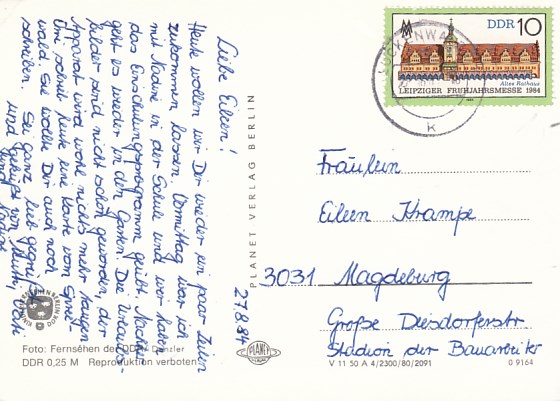 Liebe Eileen!
Heute wollen wir Dir wieder ein paar Zeilen
zukommen lassen. Vormittag war ich
mit Nadine in der Schule und wir haben
das Einschulungsprogramm geübt. Nachher
geht es wieder in den Garten. Die Urlaubs-
bilder sind nicht schön geworden, der
Apparat wird wohl nichts mehr taugen
schrieb heute eine Karte vom
wald sie wollte Dir auch noch
schreiben. Sei ganz lieb gegrüßt
und geküßt von
und Nadine
27.8.84
PLANET VERLAG BERLIN
DDR 10
Altes Rathaus
LEIPZIGER FRÜHJAHRSMESSE 1984
LUCKENWALDE
K
Fräulein
Eileen Krampe
3031 Magdeburg
Große Diesdorferstr.
Stadion der Bauarbeiter
Foto: Fernsehen der DDR / Denzler
DDR 0,25 M Reproduktion verboten
PLANET
V 11 50 A 4/2300/80/2091
0 9164